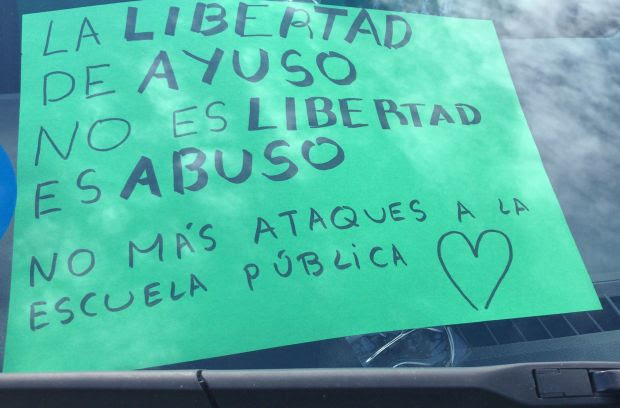 LA LIBERTAD
DE AYUSO
NO ES LIBERTAD
ES ABUSO
NO MÁS ATAQUES A LA
ESCUELA PÚBLICA